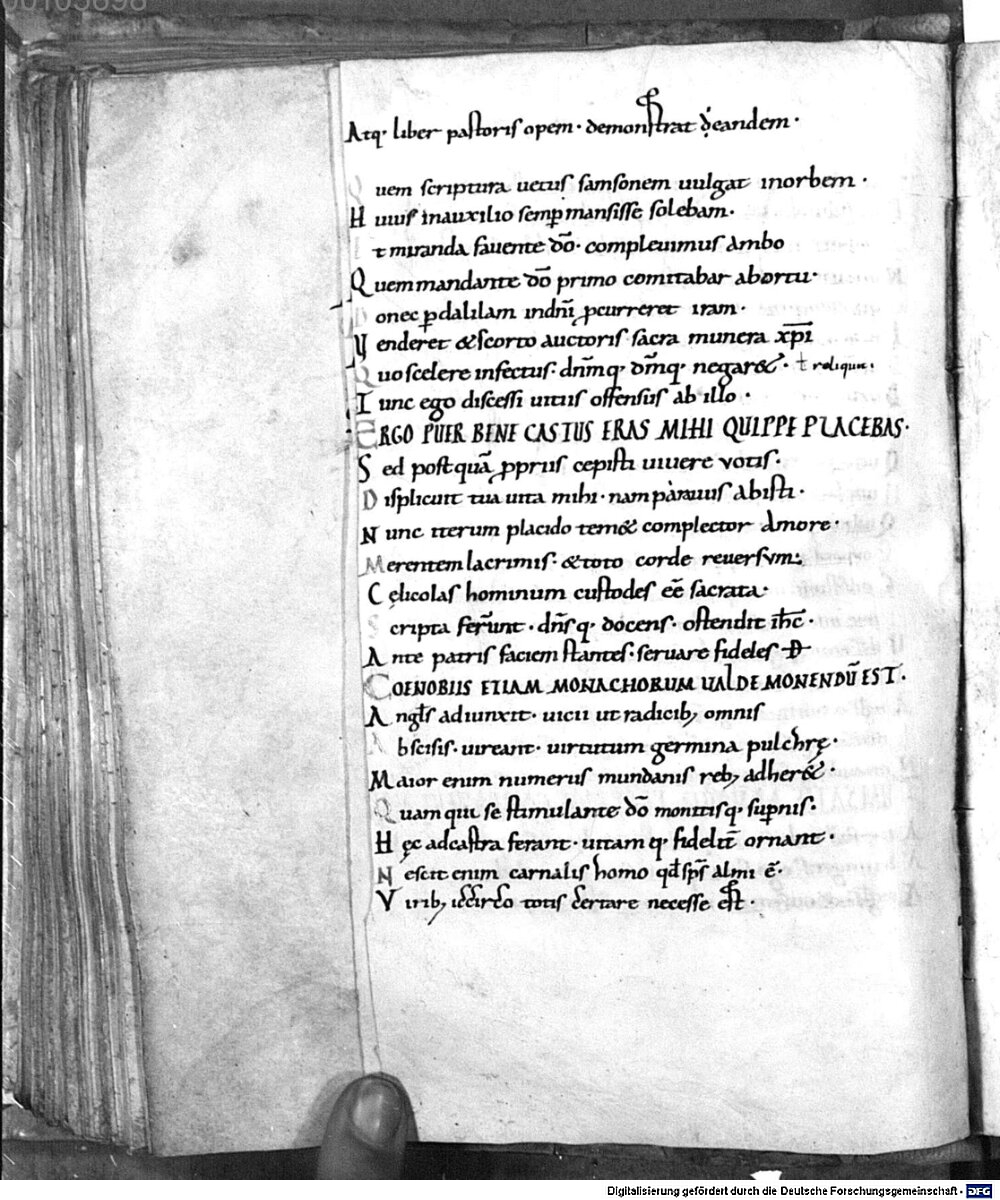 00105698
Atq· liber pastoris opem· demonstrat &#7827;eandem·
Quem scriptura uetus samsonem uulgat inorbem·
Huius inauxilio semp mansisse solebam·
Et miranda fauente dō· compleuimus ambo
Quem mandante dō primo comitabar abortu·
Donec p̱ dalilam indn̄i p̱curreret iram·
Venderet &scorto auctoris sacra munera xp̄i
Quo scelere infectus· dn̄mq· dm̄q· negar&· ł reliquit·
Tunc ego discessi uitiis offensus ab illo·
ERGO PUER BENE CASTUS ERAS MIHI QUIPPE PLACEBAS·
Sed postquā p̱priis cepisti uiuere votis·
Displicuit tua uita mihi· nam parauus abisti·
Nunc iterum placido tem& complector Amore·
Merentem lacrimis· &toto corde reuersum:
Cęlicolas hominum custodes eē sacrata·
Scripta ferunt· dn̄sq· docens· ostendit ih̄c·
Ante patris faciem stantes· seruare fideles
COENOBIIS ETIAM MONACHORUM UALDE MONENDŪ EST·
Angl̄s adiunxit· uicii ut radicib; omnis
Abscisis· uireant· uirtutum germina pulchrę·
Maior enim numerus mundanis reb; adher&·
Quam qui se stimulante dō monitisq· sup̱nis·
Hęc adcastra ferant· uitam q· fidelit̄ ornant·
Nescit enim carnalis homo qd̄ sp̄s almi ē·
Virib; iccirco totis certare necesse est·
Digitalisierung gefördert durch die Deutsche Forschungsgemeinschaft - DFG